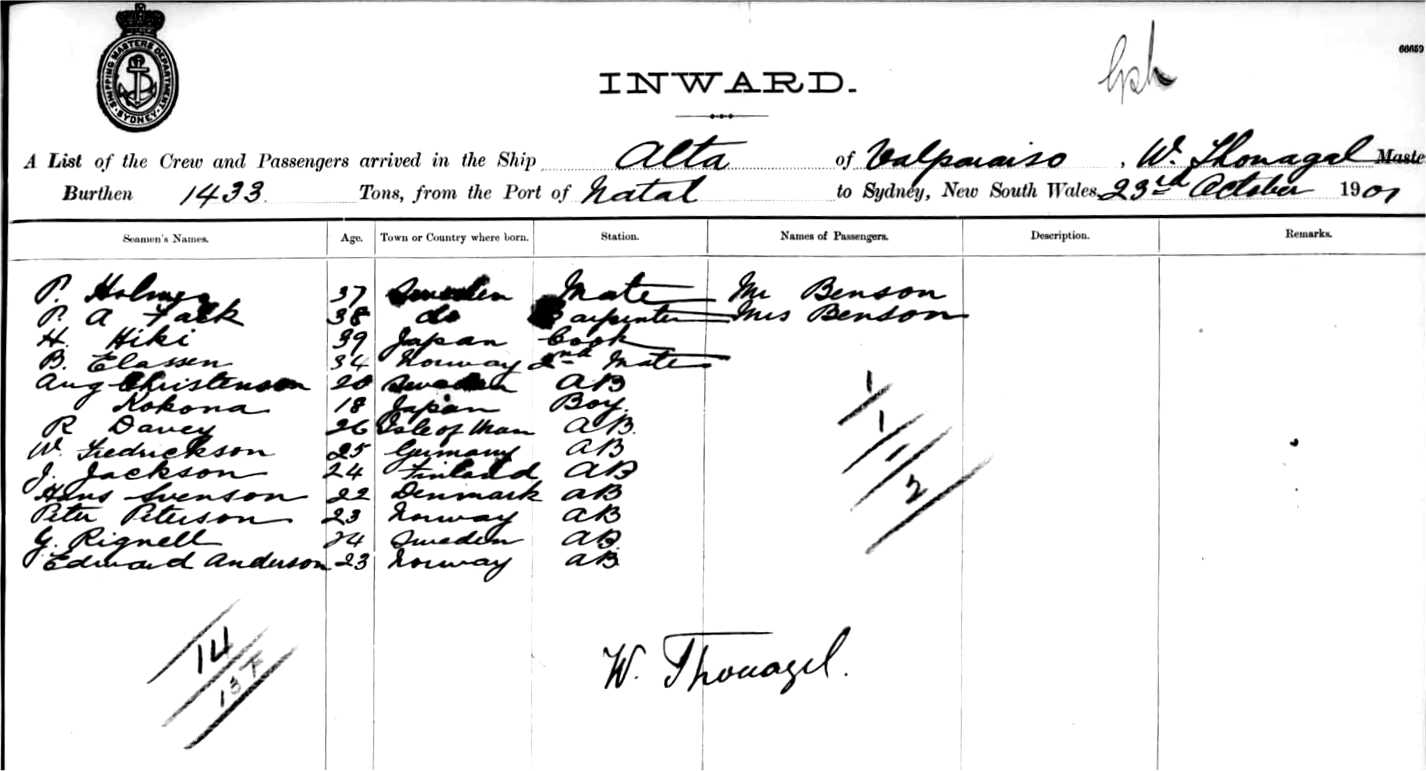 SHIPPING MASTERS DEPARTMENT SYDNEY
66659
INWARD.
A List of the Crew and Passengers arrived in the Ship Alta of Valparaiso, W. Thonagel Maste
Burthen 1433 Tons, from the Port of Natal to Sydney, New South Wales, 23rd October 1901
Seamen's Names. Age. Town or Country where born. Station. Names of Passengers. Description. Remarks.
P. Holmes 37 Sweden Mate Mr Benson
P. A Falk 38 do Carpenter Mrs Benson
H. Hiki 39 Japan Cook
B. Elassen 34 Norway 2nd Mate
Aug Christenson 20 Sweden AB
Kokona 18 Japan Boy
R Davey 26 Isle of Man AB
W. Fredrickson 25 Germany AB
J. Jackson 24 Finland AB
Hans Svenson 22 Denmark AB
Peter Peterson 23 Norway AB
G. Rignell 24 Sweden AB
Edward Anderson 23 Norway AB
1
1
1
2
14
W. Thonagel.